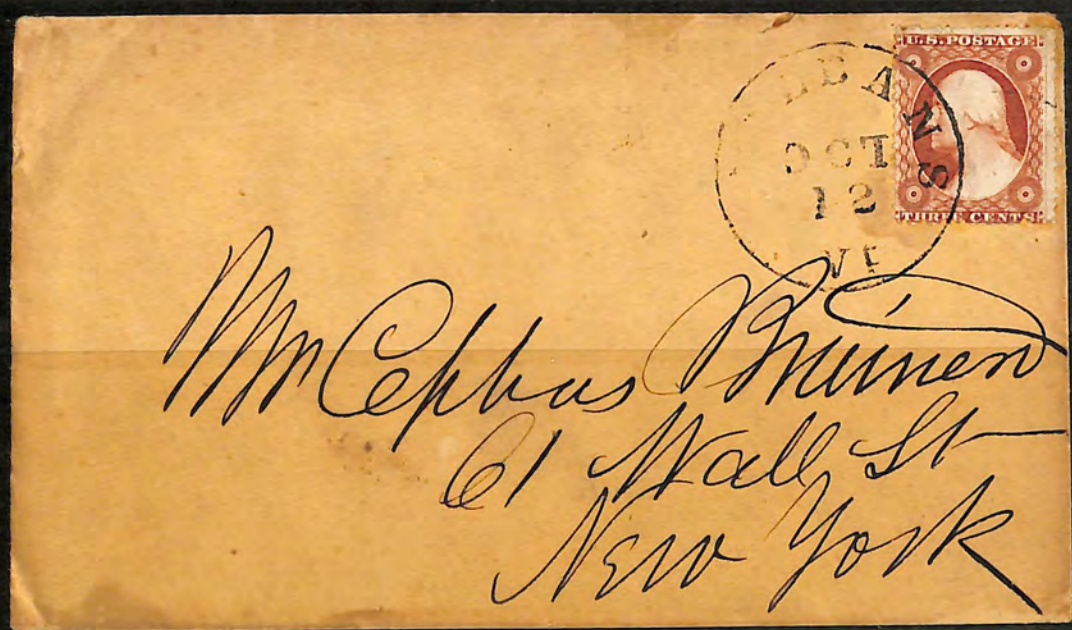 U.S. POSTAGE
THREE CENTS
LEANS
OCT
12
Mr Cephas
61 Wall St
New York